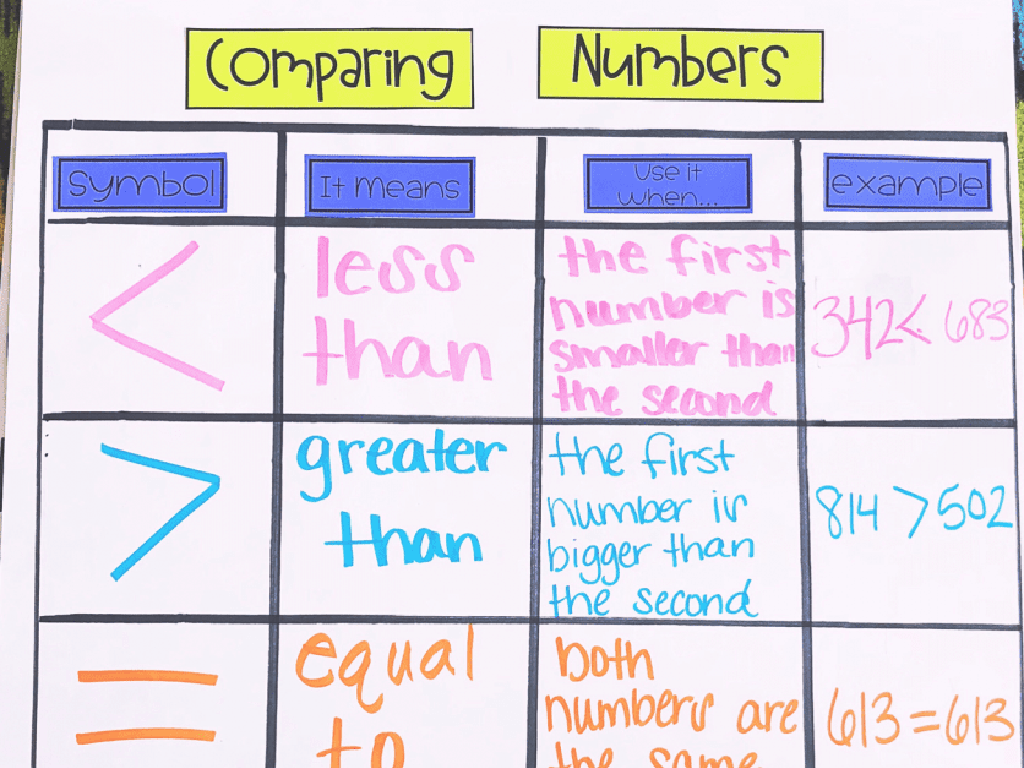 Comparing Numbers
Symbol
It means
Use it
when...
example
<
less
than
the first
number is
smaller than
the second
342 < 683
>
greater
than
the first
number is
bigger than
the second
814 > 502
=
equal
to
both
numbers are
the same
613 = 613